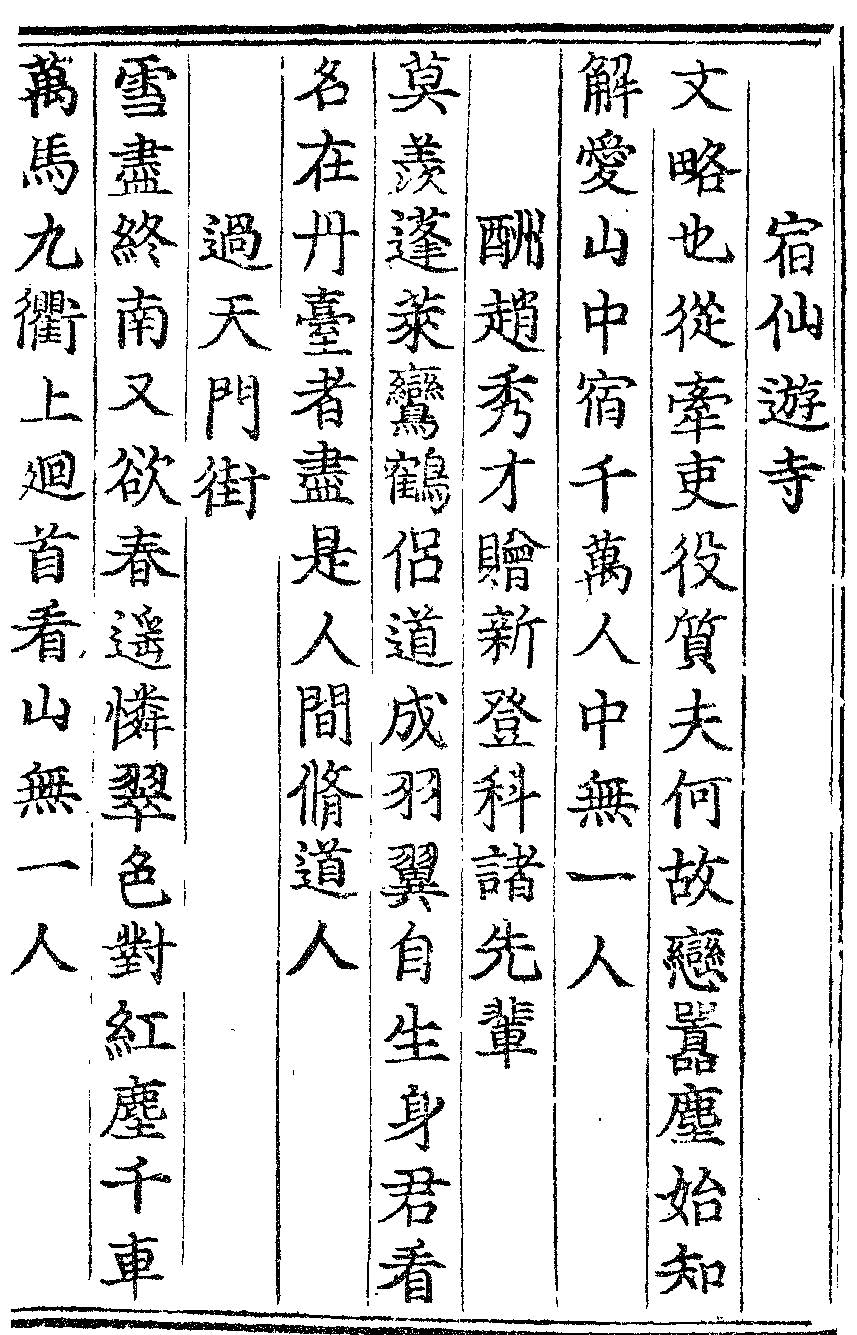 宿仙遊寺
文略也從牽吏役質夫何故戀囂塵始知
解愛山中宿千萬人中無一人
酬趙秀才贈新登科諸先輩
莫羨蓬萊鸞鶴侶道成羽翼自生身君看
名在丹臺者盡是人間脩道人
過天門街
雪盡終南又欲春遥憐翠色對紅塵千車
萬馬九衢上迴首看山無一人